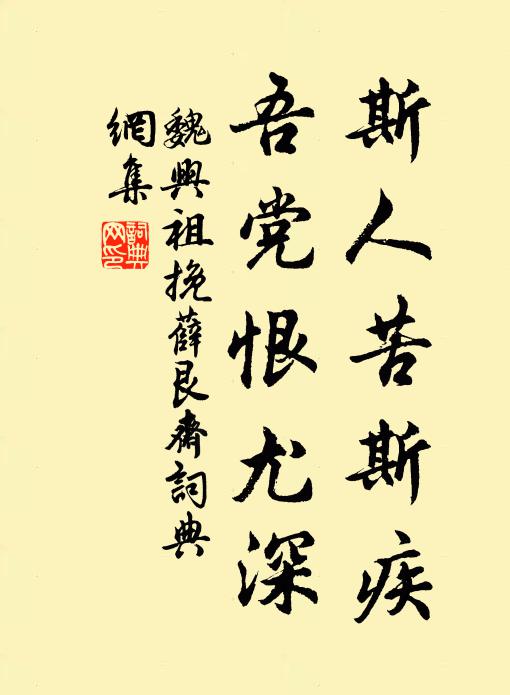 斯人苦斯疾
吾党恨尤深
魏興祖挽薛艮齋詞典
網集
詞典網印